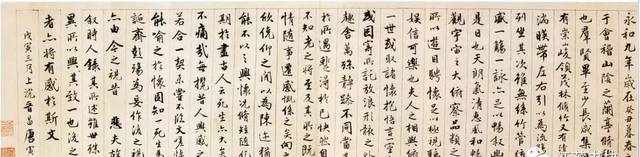 永和九年歲在癸丑暮春
于會稽山陰之蘭亭脩
也羣賢畢至少長咸集
有崇峻領茂林脩竹又有清
湍暎帶左右引以為流
列坐其次雖無絲竹管
盛一觴一詠亦足以暢敘
是日也天朗氣清惠風和暢
觀宇宙之大俯察品類
所以遊目騁懷足以極視聽
娛信可樂也夫人之相與
一世或取諸懷抱悟言室
或因寄所託放浪形骸之外
趣舍萬殊靜躁不同當
於所遇蹔得於己快然自
不知老之將至及其所之既
情隨事遷感慨係之矣向
欣俛仰之閒以為陳迹猶
不能不以之興懷況脩短隨
期於盡古人云死生亦大矣
不痛哉每攬昔人興感
若合一契未嘗不臨文嗟悼
能喻之於懷固知一死生
誕齊彭殤為妄作後之視
亦由今之視昔 悲夫故
敘時人錄其所述雖世殊
異所以興懷其致一也後
者亦將有感於斯文
戊寅三月上浣晉昌唐寅